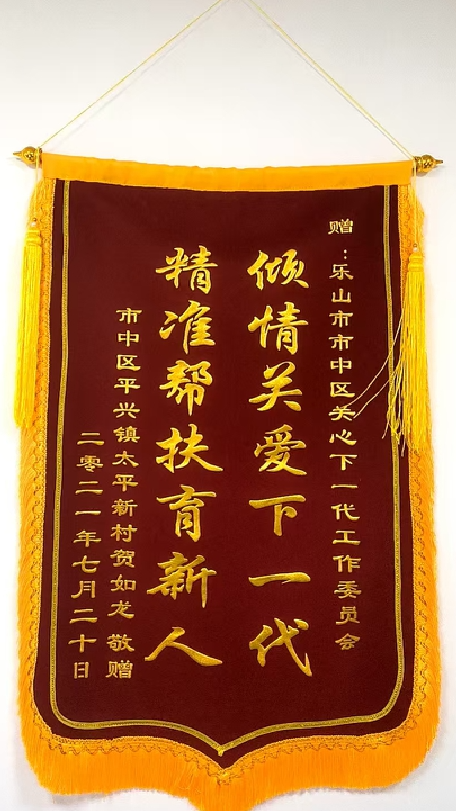 赠：乐山市市中区关心下一代工作委员会
倾情关爱下一代
精准帮扶育新人
市中区平兴镇太平新村贺如龙 敬赠
二零二一年七月二十日